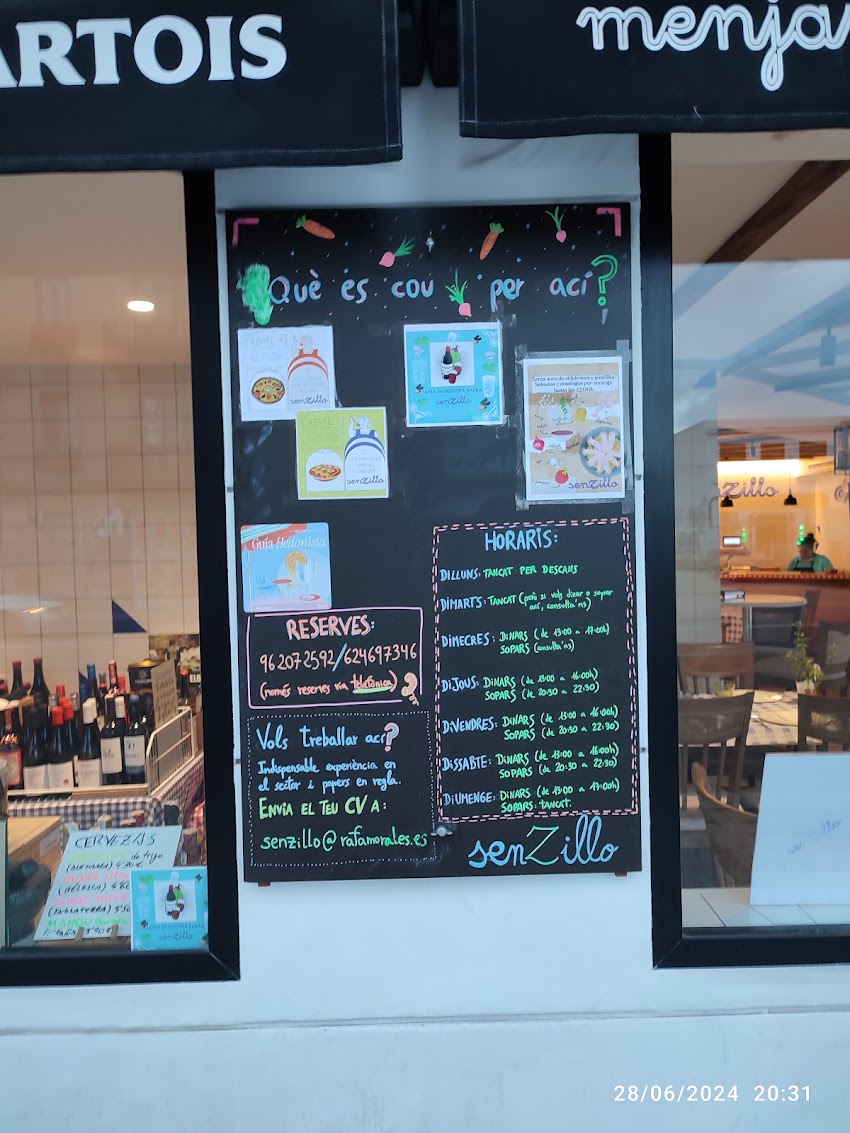 ARTOIS
menja
Què es cou per ací?
senzillo
senzillo
senzillo
Arroz
hasta las 12:00h.
senzillo
Guía Hedonista
HORARIS:
DILLUNS: TANCAT PER DESCANS
DIMARTS: TANCAT (però si vols dinar o sopar
ací, consulta'ns)
DIMECRES: DINARS (de 13:00 a 17:00h)
SOPARS (consulta'ns)
DIJOUS: DINARS (de 13:00 a 16:00h)
SOPARS (de 20:30 a 22:30)
DIVENDRES: DINARS (de 13:00 a 16:00h)
SOPARS (de 20:30 a 22:30)
DISSABTE: DINARS (de 13:00 a 16:00h)
SOPARS (de 20:30 a 22:30)
DIUMENGE: DINARS (de 13:00 a 17:00h)
SOPARS: TANCAT.
RESERVES:
962072592/624697346
(només reserves via telefònica)
Vols treballar ací?
Indispensable experiència en
el sector i papers en regla.
ENVIA EL TEU CV A:
senzillo@rafamorales.es
senZillo
CERVEZAS
senzillo
28/06/2024 20:31